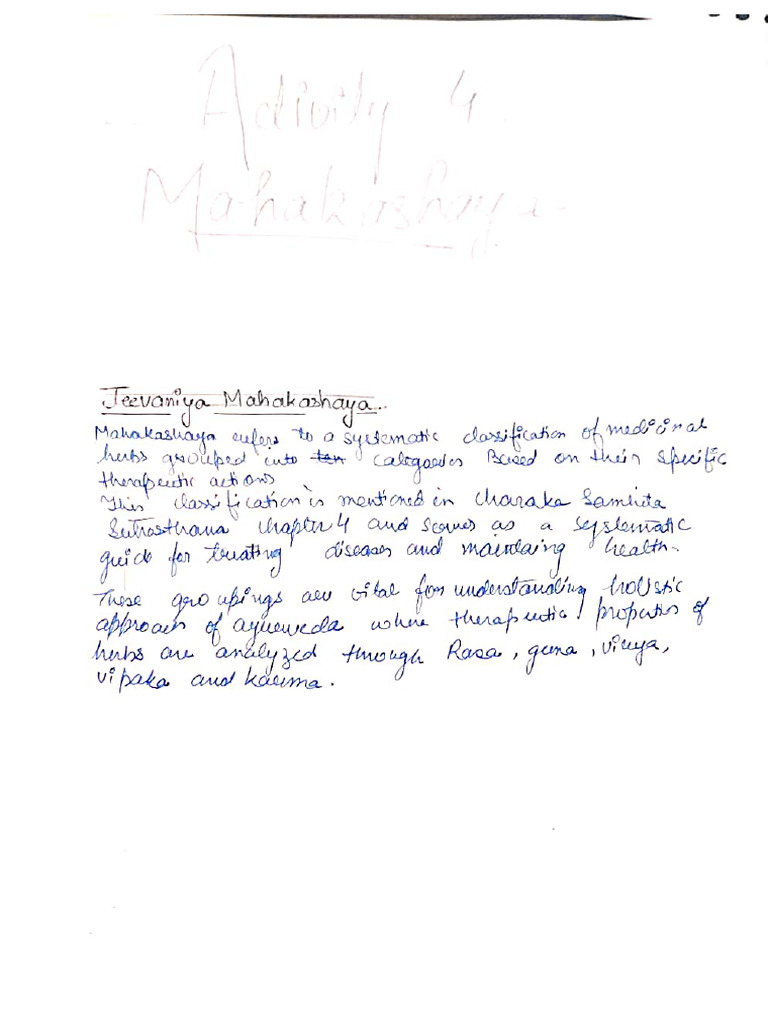 Activity 4
Mahakashaya
Jeevaniya Mahakashaya..
Mahakashaya refers to a systematic classification of medicinal
herbs grouped into ten categories Based on their specific
therapeutic actions
This classification is mentioned in Charaka Samhita
Sutrasthana chapter 4 and serves as a systematic
guide for treating diseases and maintaing health.
These groupings are vital for understanding holistic
approach of ayurveda where therapeutic properties of
herbs are analyzed through Rasa, guna, virya,
vipaka and karma.